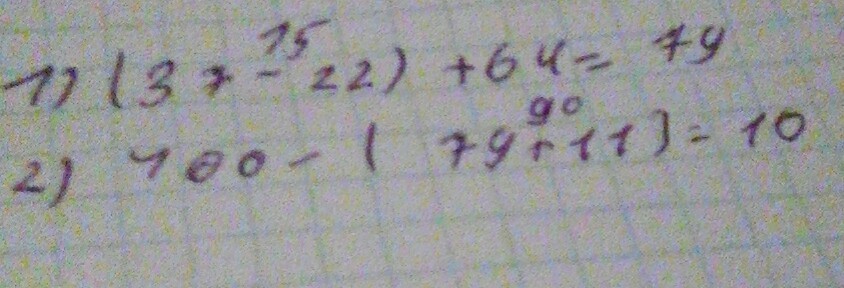 15
1) (37 - 22) + 64 = 79
90
2) 100 - (79 + 11) = 10